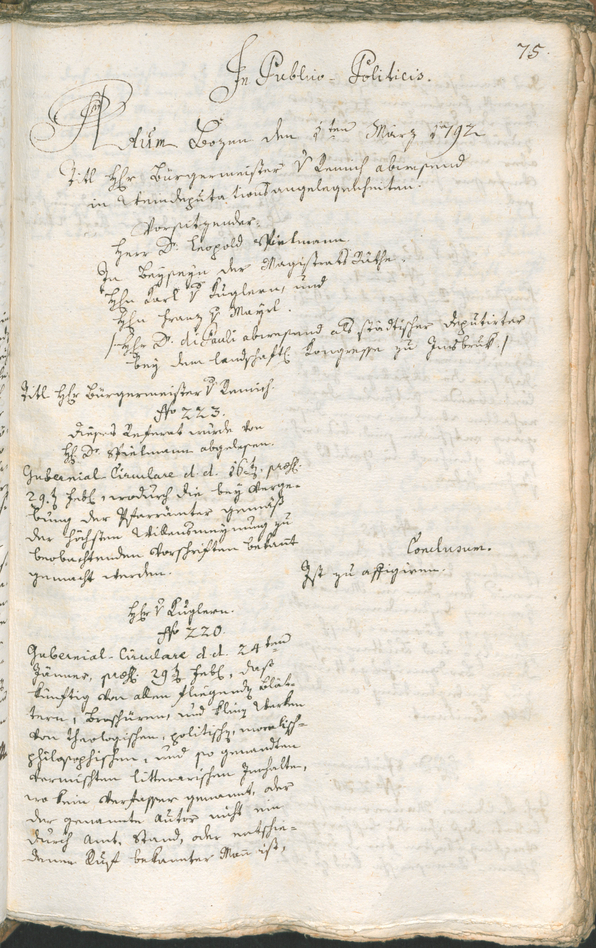 75.
In Publico-Politicis.
Actum Bozen den 1ten März 1792
Titl Hhr: Bürgermeister v Remich abwesend
in Steindeputationsangelegenheiten.
Vorsitzender:
Herr Dr. Leopold Spielmann.
In Beyseyn der Magistrats Räthe.
Hhn Karl v Kuglern, und
Hhn Franz v Mayrl.
/: Hhr Dr. di Pauli abwesend als städtischer Deputirter
bey dem landschaftl. Kongresse zu Insbruk :/
Titl Hhr Bürgermeister v Remich
No 223.
Dieses Referat wurde von
HE. Dr. Spielmann abgelesen.
Gubernial Circulare d. d. 16t. præs.
29t. Febl, wodurch die bey Verge-
bung der Pfarrämter gemäß
der höchsten Willensmeynung zu
beobachtenden Vorschriften bekannt
gemacht werden.
Conclusum.
Ist zu affigiren.
Hhr v Kuglern.
No 220.
Gubernial-Circulare d. d. 24ten
Jänner, præs. 29t Febl, daß
künftig von allen fliegenden Blät-
tern, Broschüren, und kleinen Werken
von theologischen, politisch, moralisch-
philosophischen, und so genannten
vermischten litterarischen Innhalte,
wo kein Verfasser genannt, oder
der genannte Autor nicht ein
durch Amt, Stand, oder entschie-
denen Ruf bekannter Mann ist,